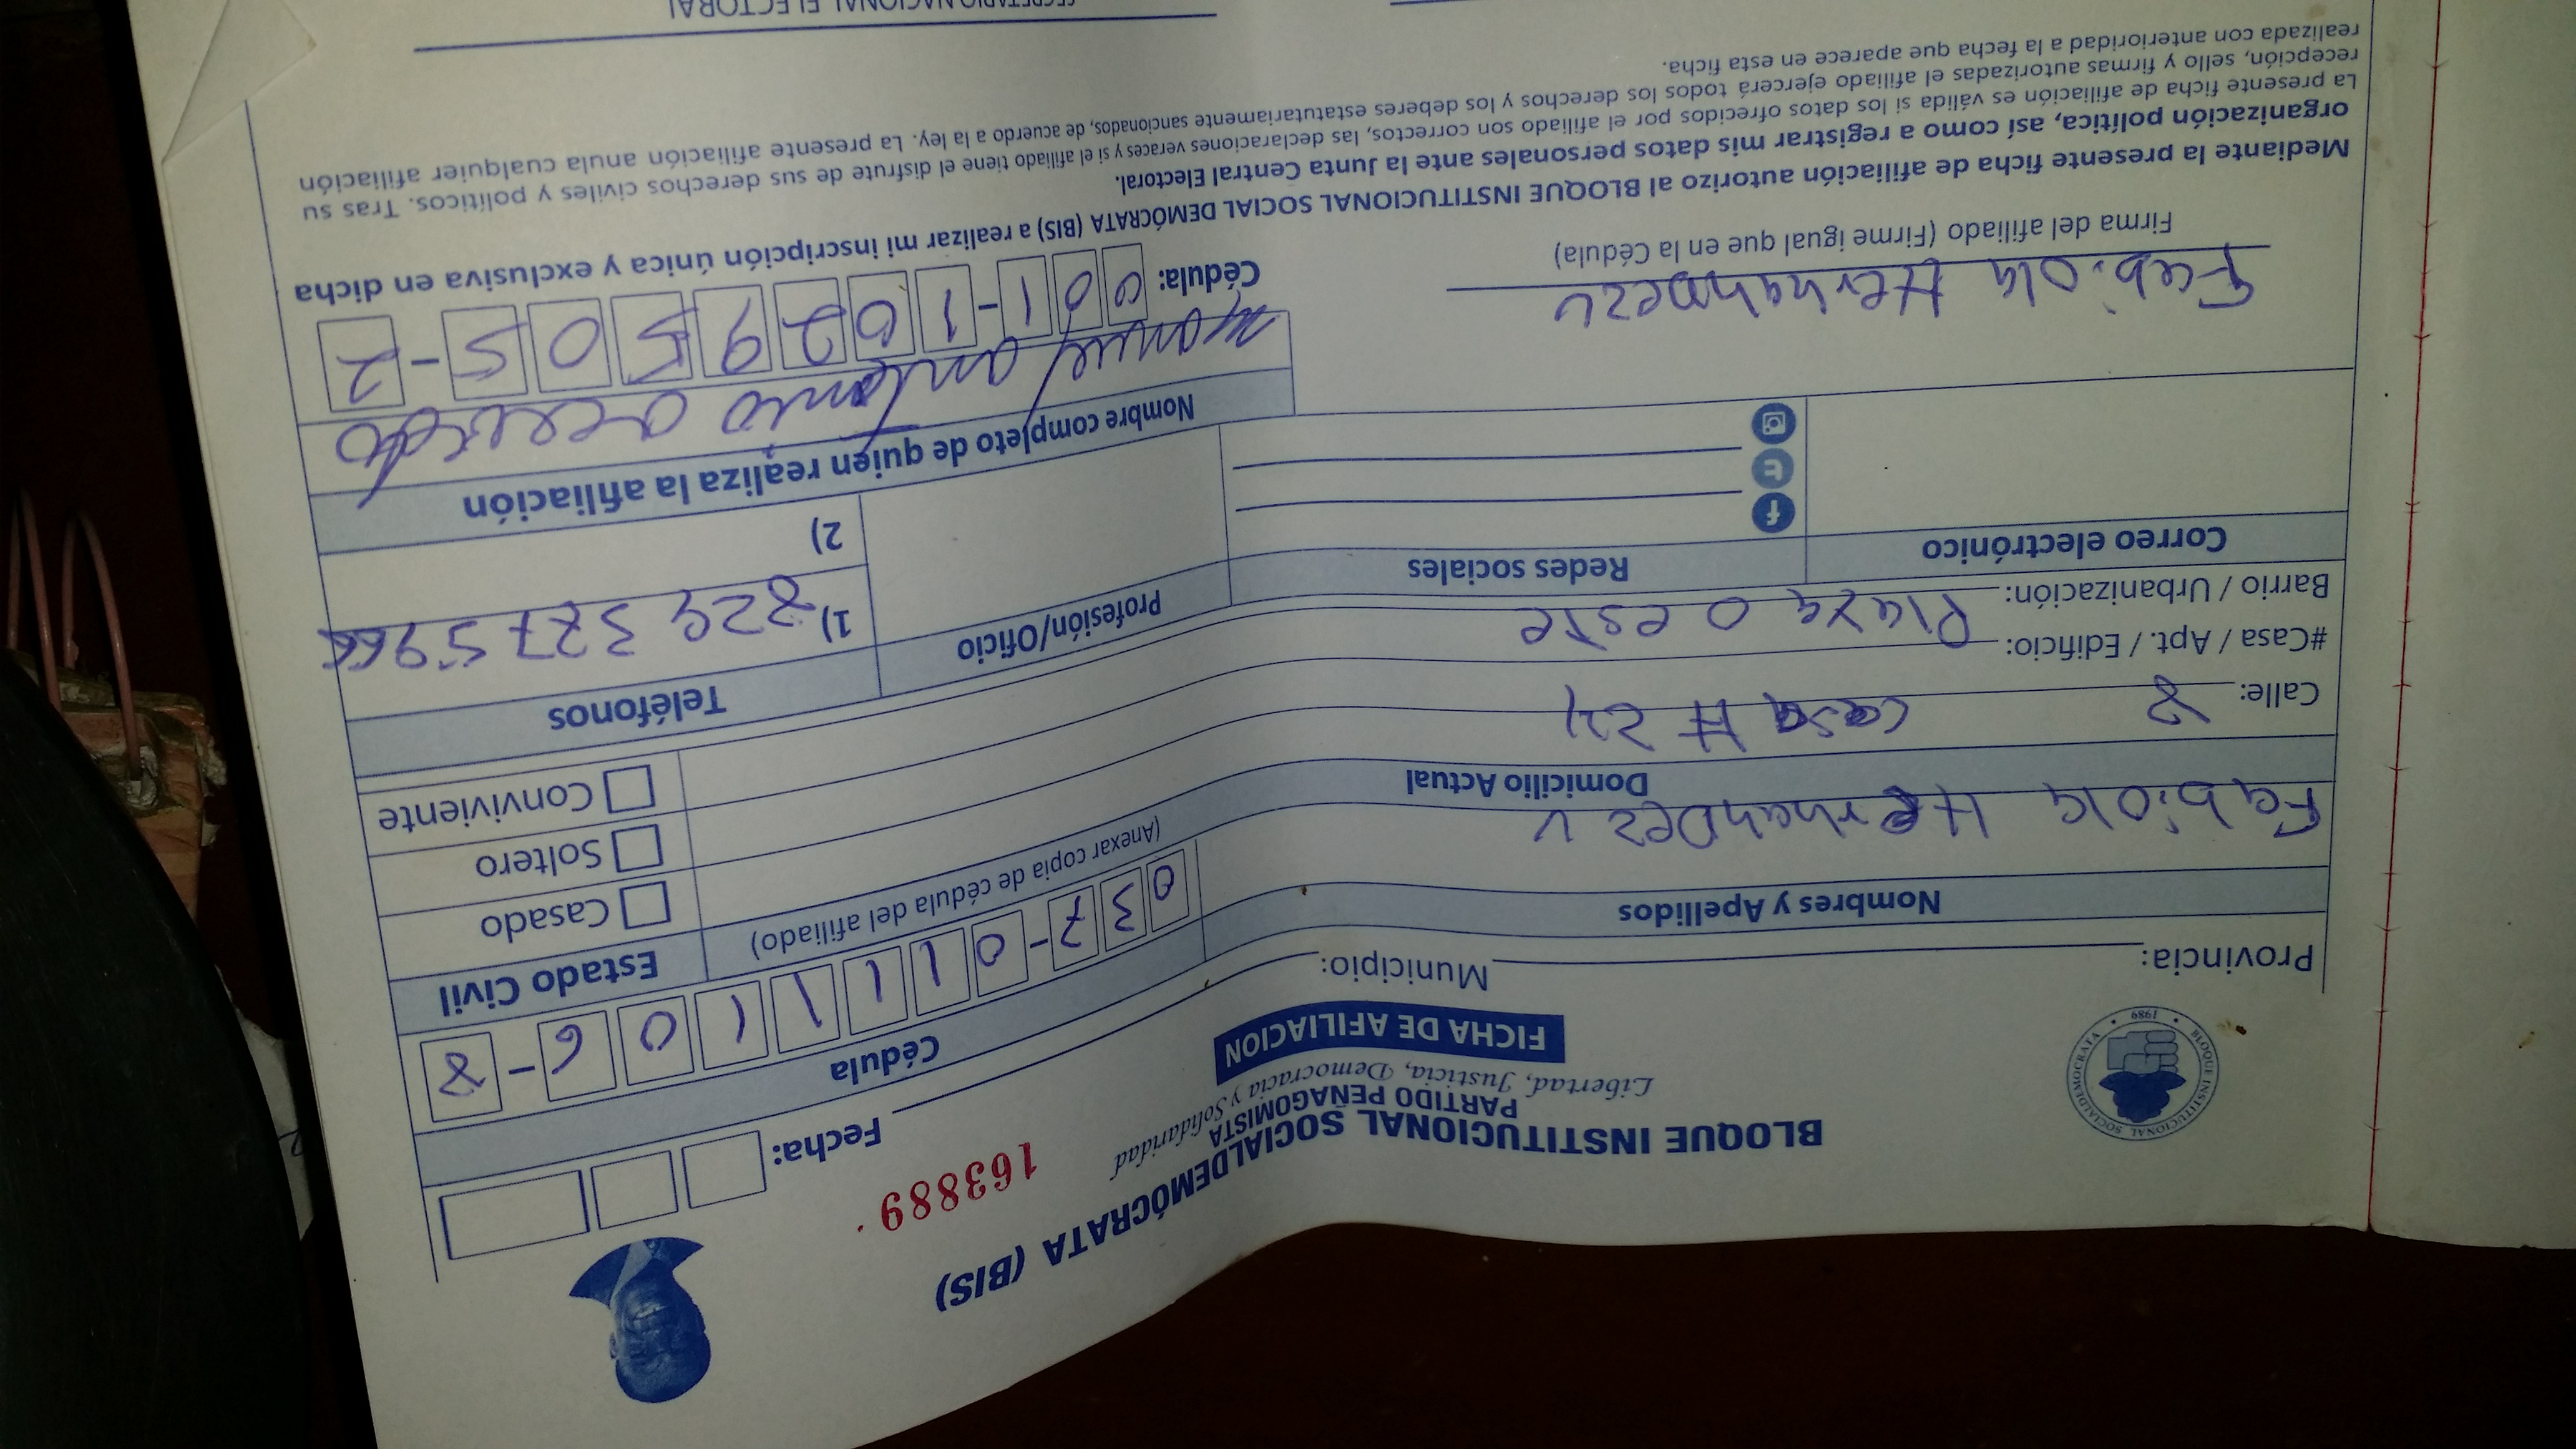 BLOQUE INSTITUCIONAL SOCIALDEMÓCRATA (BIS)
PARTIDO PEÑAGOMISTA
Libertad, Justicia, Democracia y Solidaridad
FICHA DE AFILIACION
163889
BLOQUE INSTITUCIONAL SOCIALDEMOCRATA
1989
Fecha:
Provincia:
Municipio:
Nombres y Apellidos
Cédula
Estado Civil
Fabiola HernanDez V
037-0111110 6-8
(Anexar copia de cédula del afiliado)
Casado
Soltero
Conviviente
Domicilio Actual
Calle: 8 casa # 21
#Casa / Apt. / Edificio:
Barrio / Urbanización: Plaza oeste
Profesión/Oficio
Teléfonos
1) 829 377 5966
2)
Correo electrónico
Redes sociales
Nombre completo de quien realiza la afiliación
manuel antonio acevedo
Cédula: 001-1029505-2
Fabiola HernanDez V
Firma del afiliado (Firme igual que en la Cédula)
Mediante la presente ficha de afiliación autorizo al BLOQUE INSTITUCIONAL SOCIAL DEMÓCRATA (BIS) a realizar mi inscripción única y exclusiva en dicha
organización política, así como a registrar mis datos personales ante la Junta Central Electoral.
La presente ficha de afiliación es válida si los datos ofrecidos por el afiliado son correctos, las declaraciones veraces y si el afiliado tiene el disfrute de sus derechos civiles y políticos. Tras su
recepción, sello y firmas autorizadas el afiliado ejercerá todos los derechos y los deberes estatutariamente sancionados, de acuerdo a la ley. La presente afiliación anula cualquier afiliación
realizada con anterioridad a la fecha que aparece en esta ficha.
SECRETARIO NACIONAL ELECTORAL